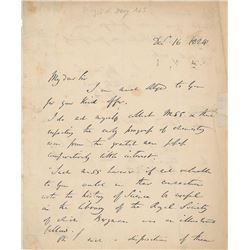 Decr 16. 1824
My dear Sir
I am much obliged to you
for your kind offer.
I do not myself collect MSS & those
respecting the early progress of chemistry
have from the greatest new
comparatively little interest.
Such MSS however if not
to you would in their connection
with the history of Science be useful
in the Library of the Royal Society
of which Bergman was an illustrious
fellow.
a disposition of them